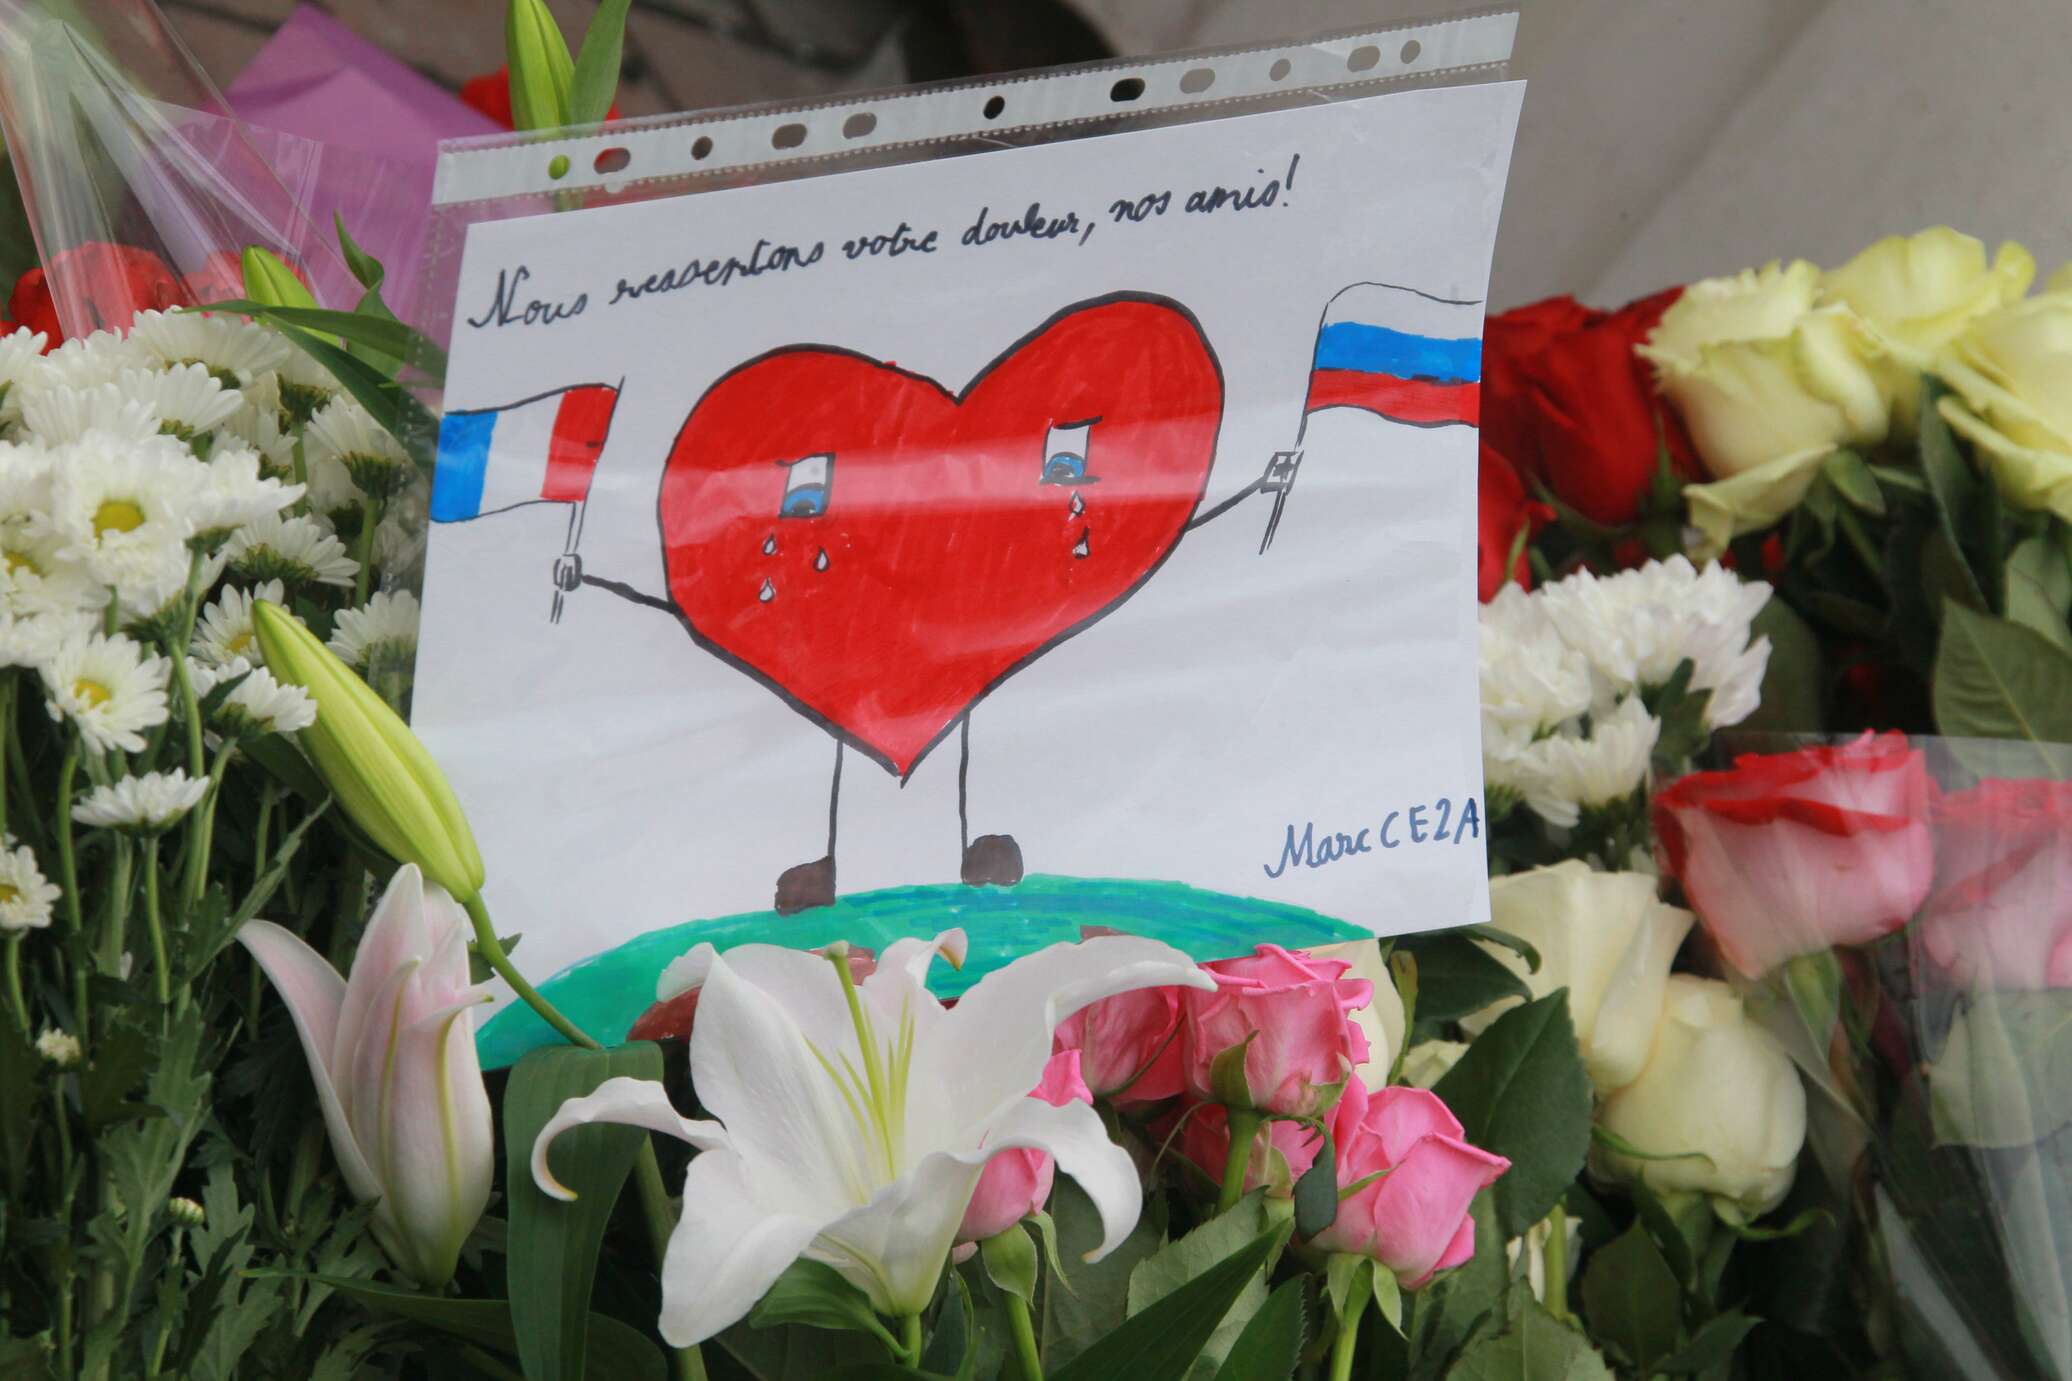 Nous ressentons votre douleur, nos amis!
Marc CE2A